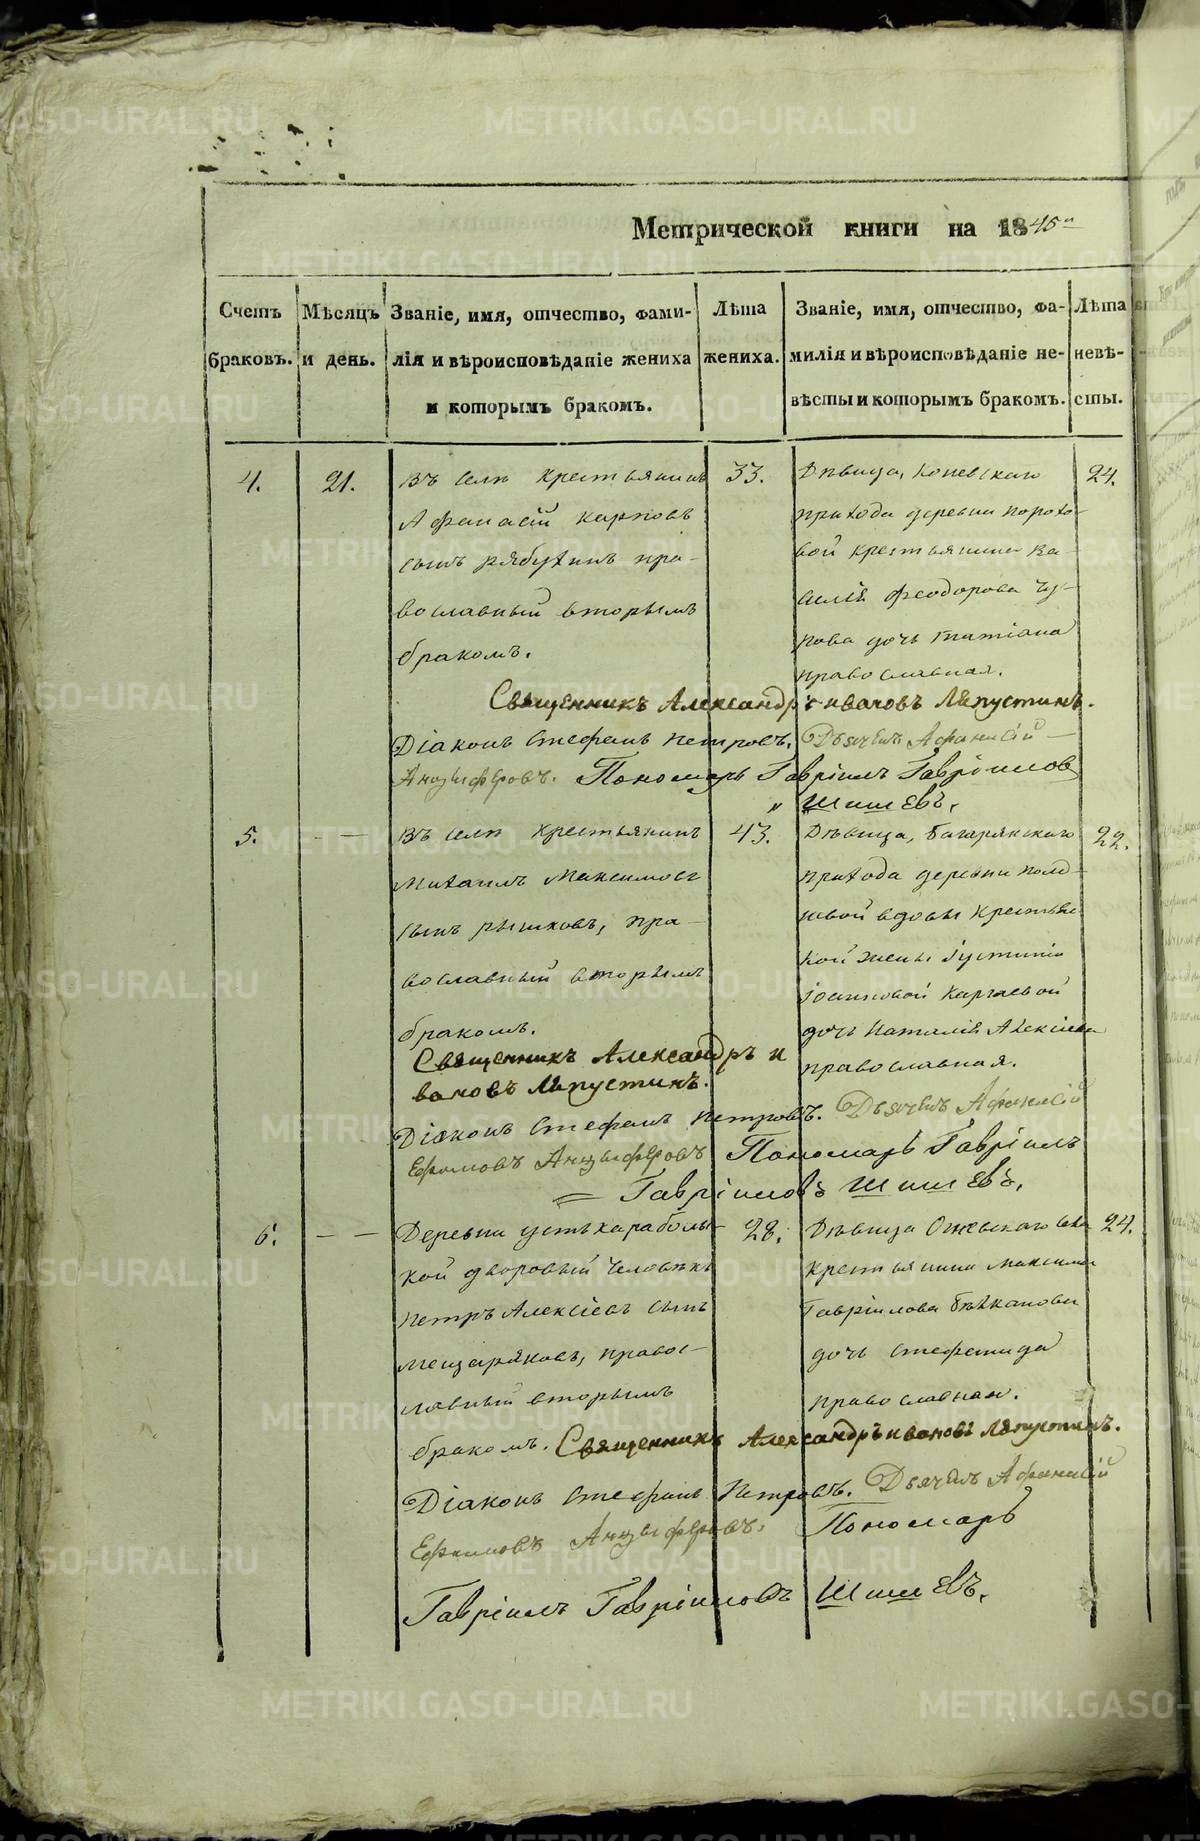 Метрической книги на 1845й
Счетъ браковъ.
Мѣсяцъ и день.
Званіе, имя, отчество, фами-
лія и вѣроисповѣданіе жениха
и которымъ бракомъ.
Лѣта
жениха.
Званіе, имя, отчество, фа-
милія и вѣроисповѣданіе не-
вѣсты и которымъ бракомъ.
Лѣта
невѣ-
сты.
4.
21.
Въ селѣ крестьянинъ
Афанасій Карповъ
сынъ Рябухинъ пра-
вославный вторымъ
бракомъ.
33.
Дѣвица, Коневскаго
прихода деревни Порохо-
вой крестьянина Ва-
силія Феодорова Чу-
пова дочь Татіана
православная.
24.
Священникъ Александръ Ивановъ Ляпустинъ.
Діаконъ Стефанъ Петровъ. Дьячекъ Афанасій
Анцыферовъ. Пономарь Гавріилъ Гавріиловъ
Шишевъ.
5.
— —
Въ селѣ крестьянинъ
Михаилъ Максимовъ
сынъ Рышковъ, пра-
вославный вторымъ
бракомъ.
43.
Дѣвица, Багарякскаго
прихода деревни Полд-
невой вдовы крестьян-
кой жены Іустиніи
Іоанновой Каргаевой
дочь Наталія Алексіева
православная.
22.
Священникъ Александръ И
вановъ Ляпустинъ.
Діаконъ Стефанъ Петровъ. Дьячекъ Афанасій
Ефимовъ Анцыферовъ Пономарь Гавріилъ
= Гавріиловъ Шишевъ.
6.
— —
Деревни Устькараболь-
кой дворовый человѣкъ
Петръ Алексіевъ сынъ
Мещаряковъ, правос-
лавный вторымъ
бракомъ.
28.
Дѣвица Огневскаго села
крестьянина Максима
Гавріилова Бѣканова
дочь Стефанида
православная.
24.
Священникъ Александръ Ивановъ Ляпустинъ.
Діаконъ Стефанъ Петровъ. Дьячекъ Афанасій
Ефимовъ Анцыферовъ. Пономарь
Гавріилъ Гавріиловъ Шишевъ.
METRIKI.GASO-URAL.RU